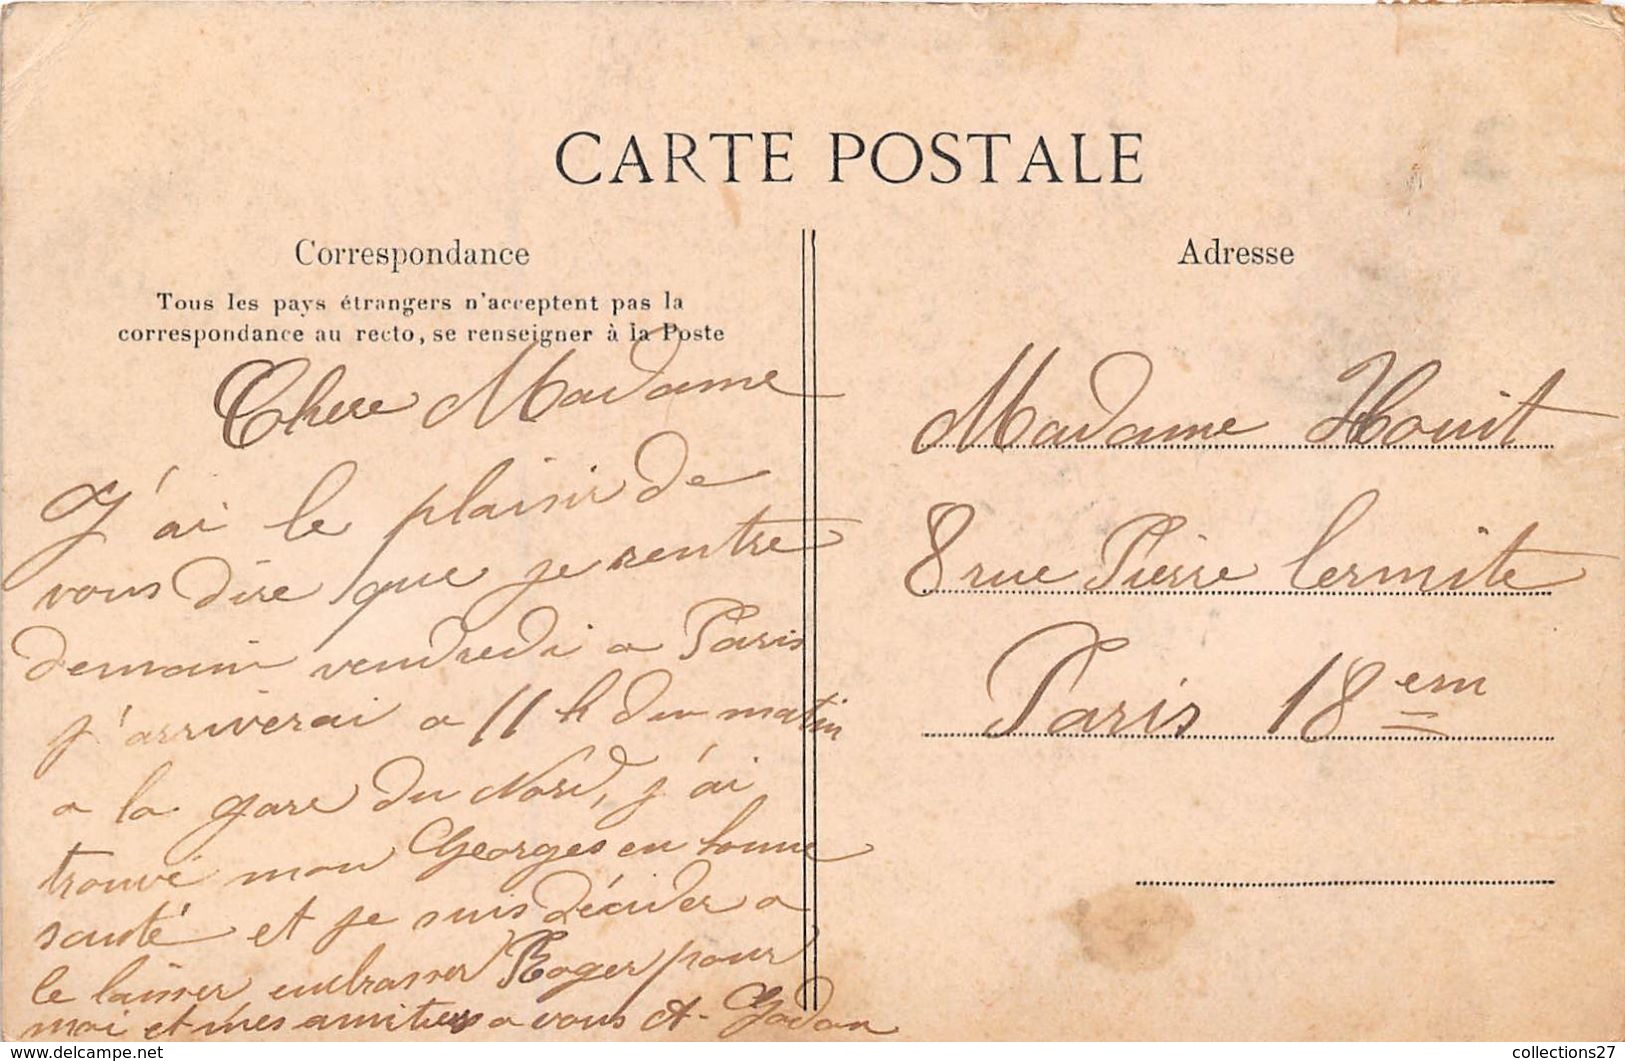 CARTE POSTALE
Correspondance
Tous les pays étrangers n'acceptent pas la
correspondance au recto, se renseigner à la Poste
Chere Madame
J'ai le plaisir de
vous dire que je rentre
demain vendredi a Paris
j'arriverai a 11 h du matin
a la gare du Nord, j'ai
trouvé mon Georges en bonne
santé et je suis décider a
le laisser embrasser Roger pour
moi et mes amities a vous A. Godon
Adresse
Madame Houit
8 rue Pierre lermite
Paris 18em
collections27